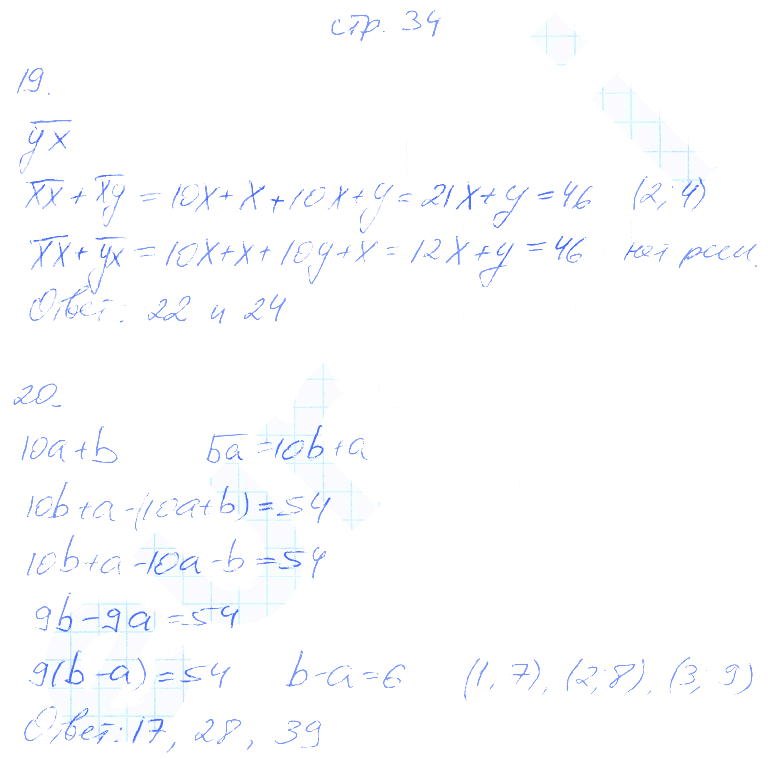 стр. 34
19.
y̅x̅
x̅x̅ + x̅y̅ = 10x + x + 10x + y = 21x + y = 46 (2; 4)
x̅x̅ + y̅x̅ = 10x + x + 10y + x = 12x + y = 46 нет реш.
Ответ: 22 и 24
20.
10a + b b̅a̅ = 10b + a
10b + a - (10a + b) = 54
10b + a - 10a - b = 54
9b - 9a = 54
9(b - a) = 54 b - a = 6 (1, 7), (2; 8), (3; 9)
Ответ: 17, 28, 39